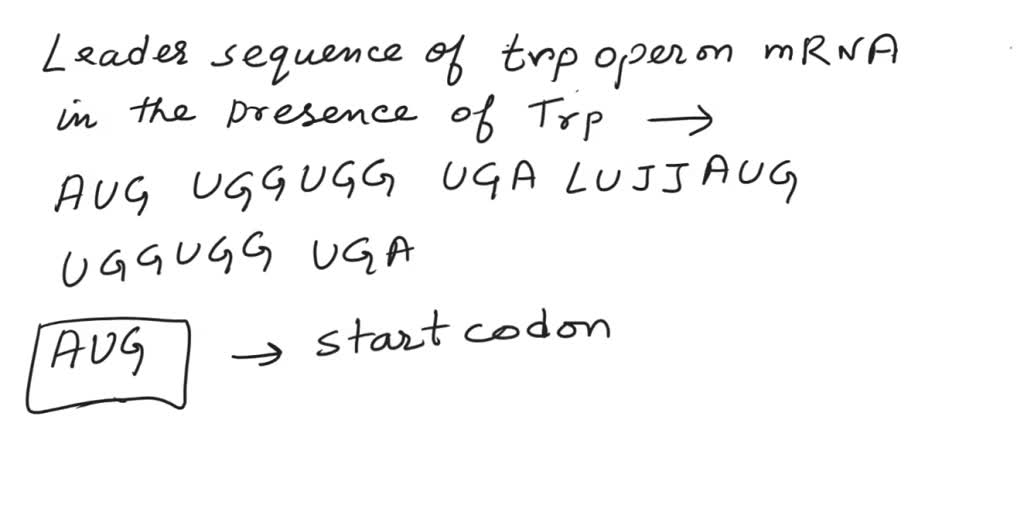 Leader sequence of trp operon mRNA
in the presence of Trp →
AUG UGGUGG UGA LUJJAUG
UGGUGG UGA
AUG → start codon